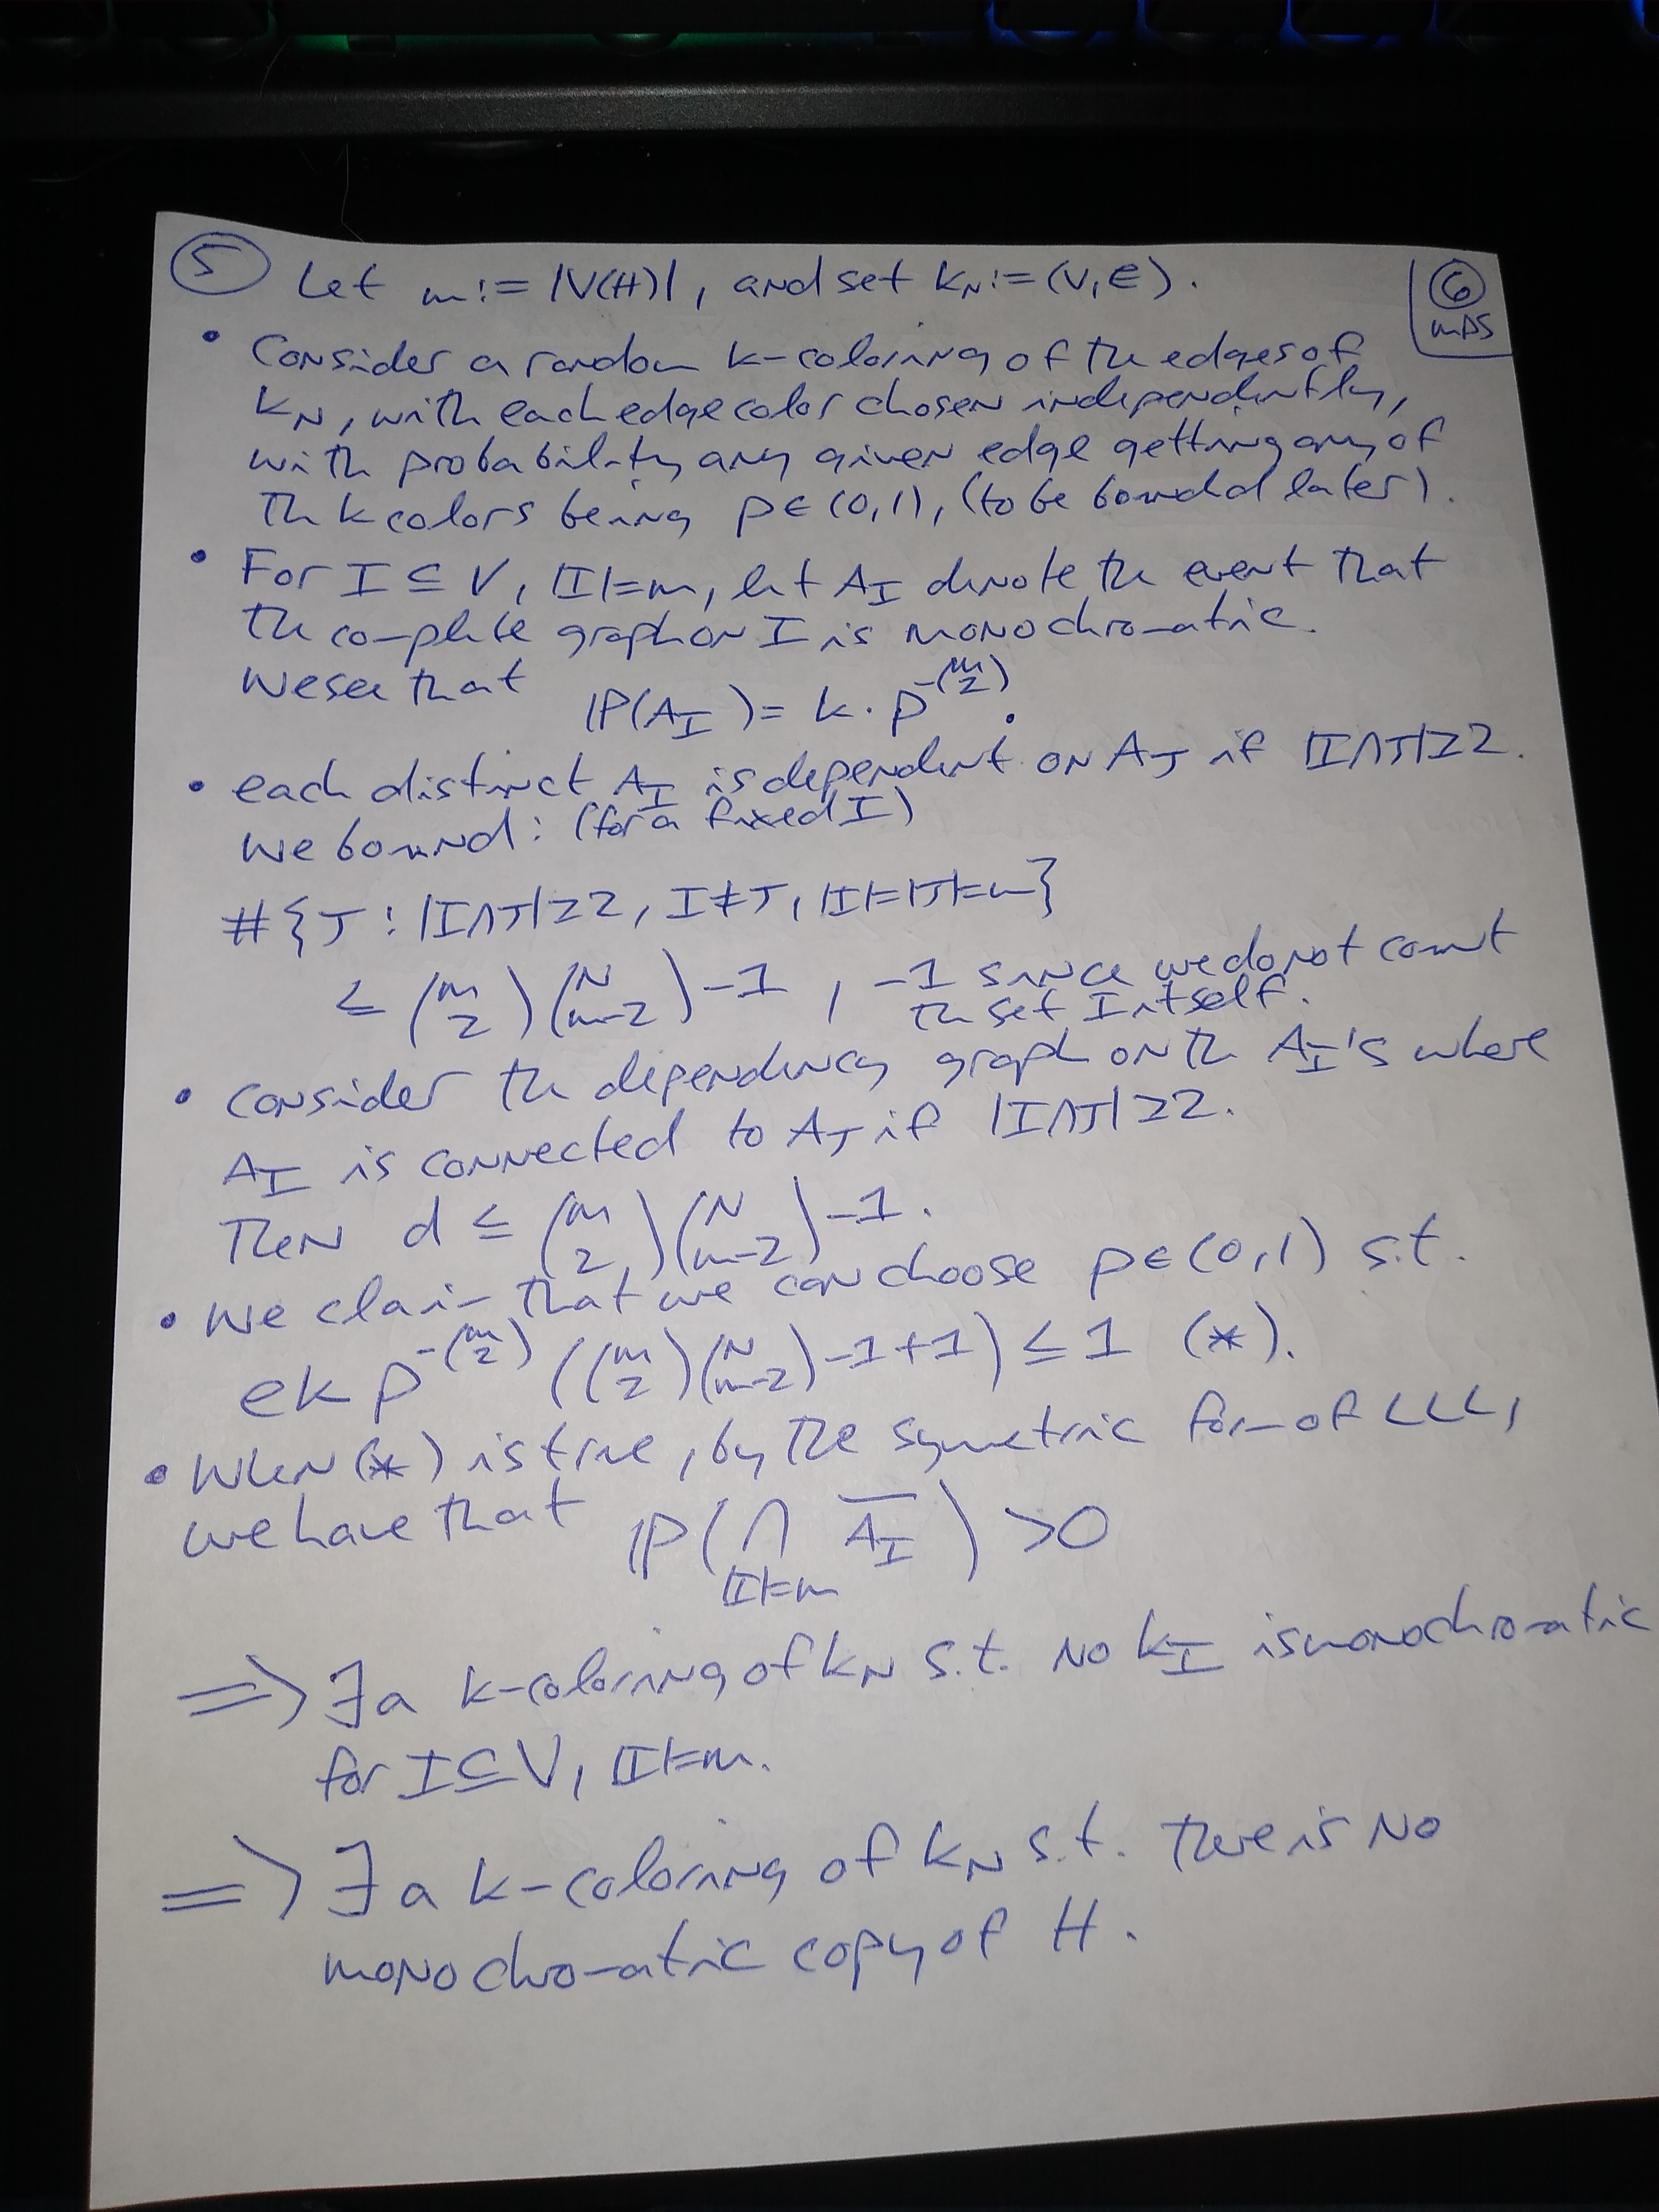 ⑤ Let m := |V(H)|, and set K_N := (V, E).
⑥ MDS
• Consider a random k-coloring of the edges of
K_N, with each edge color chosen independently,
with probability any given edge getting any of
the k colors being p ∈ (0,1), (to be bounded later).
• For I ⊆ V, |I|=m, let A_I denote the event that
the complete graph on I is monochromatic.
We see that P(A_I) = k · p^{-\binom{m}{2}}.
• each distinct A_I is dependent on A_J if |I∩J|≥2.
We bound: (for a fixed I)
#{J : |I∩J|≥2, I≠J, |I|=|J|=m}
≤ \binom{m}{2}\binom{N}{m-2} - 1 , -1 since we do not count
the set I itself.
• Consider the dependency graph on the A_I's where
A_I is connected to A_J if |I∩J|≥2.
Then d ≤ \binom{m}{2}\binom{N}{m-2} - 1.
• We claim that we can choose p ∈ (0,1) s.t.
ek p^{-\binom{m}{2}} (\binom{m}{2}\binom{N}{m-2} - 1 + 1) ≤ 1 (*).
• When (*) is true, by the symetric form of LLL,
we have that P(∩_{|I|=m} \overline{A_I}) > 0
⇒ ∃ a k-coloring of K_N s.t. no K_I is monochromatic
for I ⊆ V, |I|=m.
⇒ ∃ a k-coloring of K_N s.t. there is no
monochromatic copy of H.